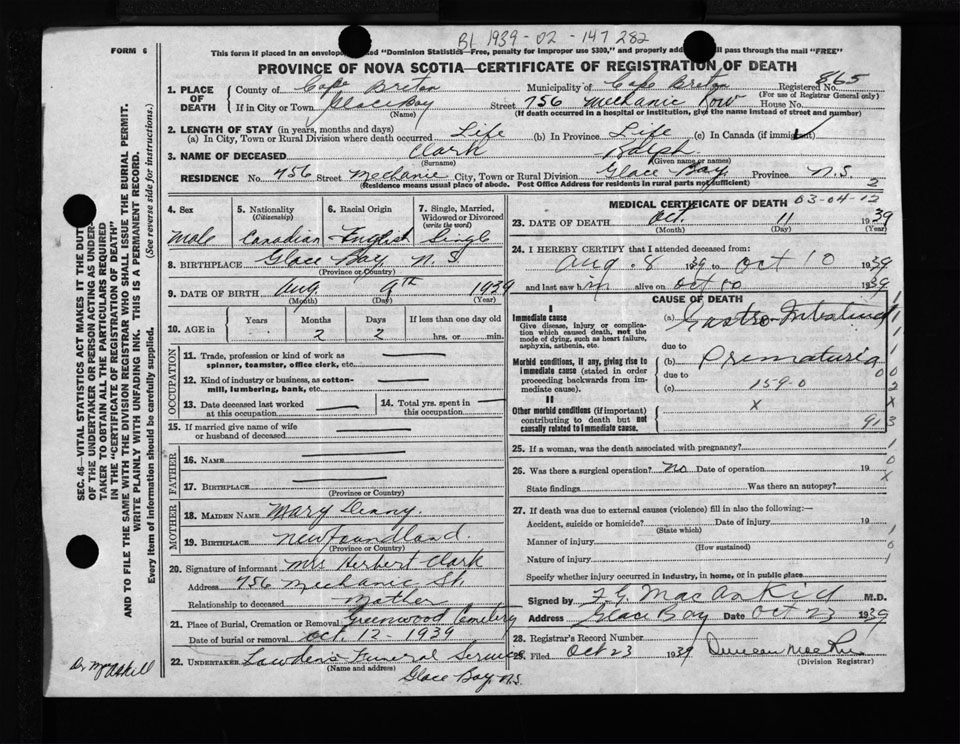 B1 1939-02-147 282
FORM 6
This form if placed in an envelope "Dominion Statistics—Free, penalty for improper use $300," and properly will pass through the mail "FREE"
PROVINCE OF NOVA SCOTIA—CERTIFICATE OF REGISTRATION OF DEATH
1. PLACE OF DEATH County of Cape Breton Municipality of Cape Breton Registered No. 865
(For use of Registrar General only)
If in City or Town Glace Bay Street 756 Mechanic Row House No.
(Name) (If death occurred in a hospital or institution, give the name instead of street and number)
2. LENGTH OF STAY (in years, months and days)
(a) In City, Town or Rural Division where death occurred Life (b) In Province Life (c) In Canada (if immigrant)
3. NAME OF DECEASED Clark Ralph
(Surname) (Given name or names)
RESIDENCE No. 756 Street Mechanic City, Town or Rural Division Glace Bay Province N.S.
(Residence means usual place of abode. Post Office Address for residents in rural parts not sufficient) 2
4. Sex Male
5. Nationality (Citizenship) Canadian
6. Racial Origin English
7. Single, Married, Widowed or Divorced (write the word) Single
8. BIRTHPLACE Glace Bay N.S.
(Province or Country)
9. DATE OF BIRTH Aug. 9th 1939
(Month) (Day) (Year)
10. AGE in Years Months Days If less than one day old
2 2 hrs. or min.
OCCUPATION
11. Trade, profession or kind of work as spinner, teamster, office clerk, etc.
12. Kind of industry or business, as cotton-mill, lumbering, bank, etc.
13. Date deceased last worked at this occupation
14. Total yrs. spent in this occupation
15. If married give name of wife or husband of deceased
FATHER
16. NAME
17. BIRTHPLACE
(Province or Country)
MOTHER
18. MAIDEN NAME Mary Denny.
19. BIRTHPLACE Newfoundland.
(Province or Country)
20. Signature of informant Mrs Herbert Clark
Address 756 Mechanic St.
Relationship to deceased Mother
21. Place of Burial, Cremation or Removal Greenwood Cemetery
Date of burial or removal Oct. 12-1939
22. UNDERTAKER Funeral Service
(Name and address)
Glace Bay N.S.
MEDICAL CERTIFICATE OF DEATH 03-04-12
23. DATE OF DEATH Oct. 11 1939
(Month) (Day)
24. I HEREBY CERTIFY that I attended deceased from:
Aug. 8 1939 to Oct 10 1939
and last saw him alive on Oct 10 1939
CAUSE OF DEATH
I
Immediate cause
Give disease, injury or complication which caused death, not the mode of dying, such as heart failure, asphyxia, asthenia, etc.
(a) Gastro Intestinal
due to
Morbid conditions, if any, giving rise to immediate cause (stated in order proceeding backwards from immediate cause).
(b) Prematuria
due to
(c) 159-0
II
Other morbid conditions (if important) contributing to death but not causally related to immediate cause.
x
913
25. If a woman, was the death associated with pregnancy?
26. Was there a surgical operation? No Date of operation 19
State findings Was there an autopsy?
27. If death was due to external causes (violence) fill in also the following:—
Accident, suicide or homicide? Date of injury 19
(State which)
Manner of injury
(How sustained)
Nature of injury
Specify whether injury occurred in industry, in home, or in public place.
Signed by M.D.
Address Glace Bay Date Oct 23 1939
28. Registrar's Record Number
29. Filed Oct 23 1939 Duncan
(Division Registrar)
SEC. 46—VITAL STATISTICS ACT MAKES IT THE DUTY
OF THE UNDERTAKER OR PERSON ACTING AS UNDER-
TAKER TO OBTAIN ALL THE PARTICULARS REQUIRED
IN THE "CERTIFICATE OF REGISTRATION OF DEATH"
AND TO FILE THE SAME WITH THE DIVISION REGISTRAR WHO SHALL ISSUE THE BURIAL PERMIT.
WRITE PLAINLY WITH UNFADING INK. THIS IS A PERMANENT RECORD.
Every item of information should be carefully supplied. (See reverse side for instructions.)